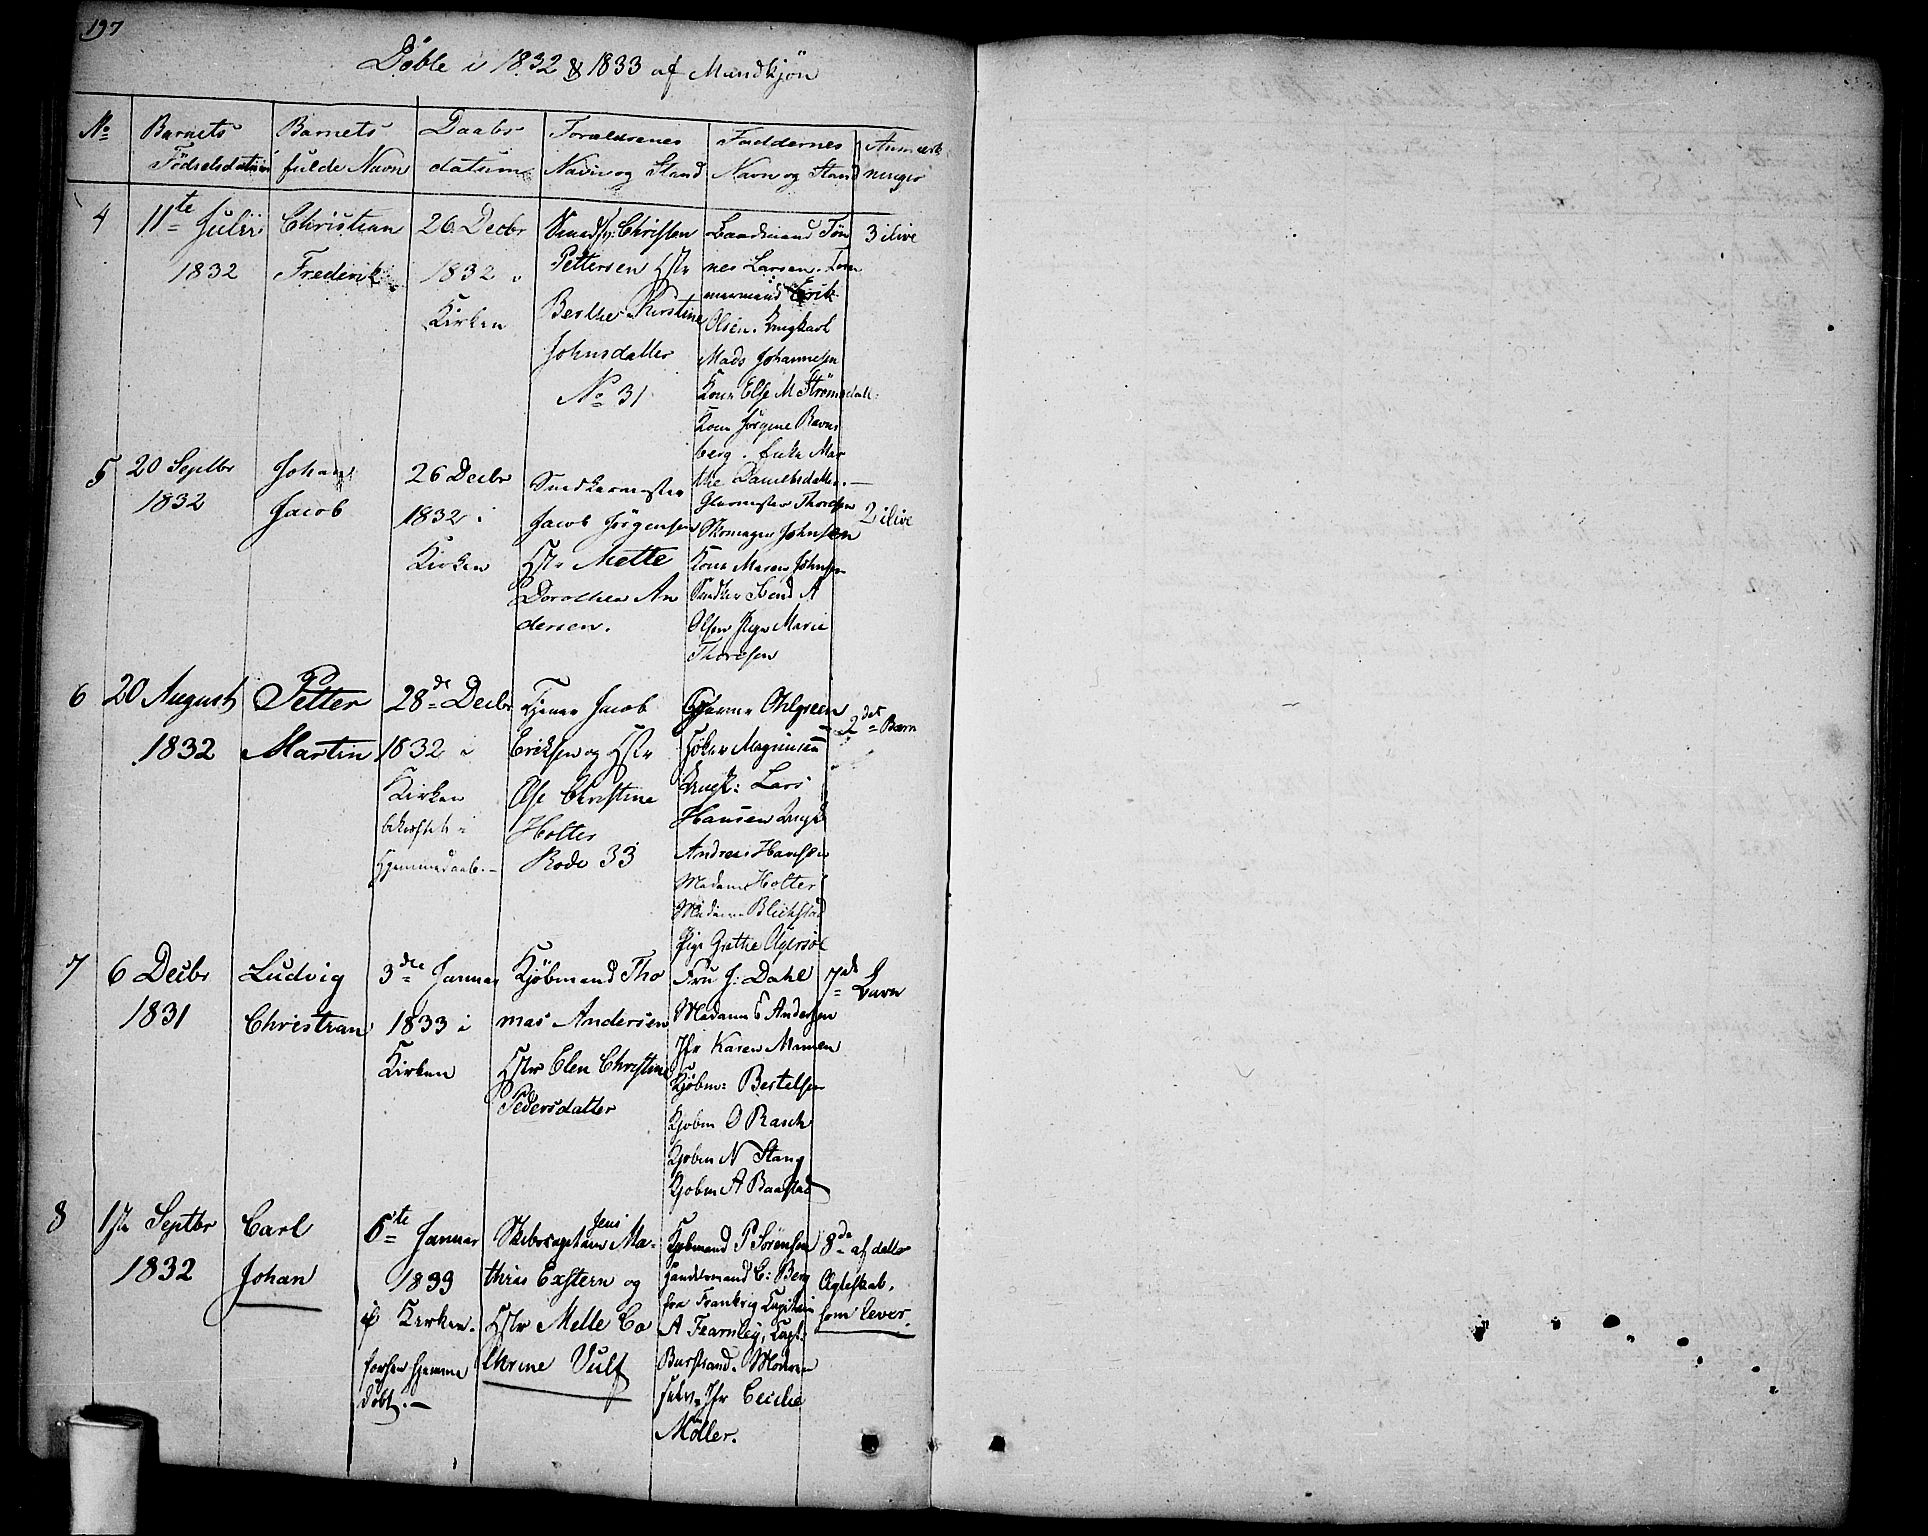 197
Döbte i 1832 & 1833 af Mandkjön
No
Barnets
Födselsdatum
Barnets
fulde Navn
Daabs
datum
Forældrenes
Navn og Stand
Faddernes
Navn og Stand
Anmærk
ninger
4
11te Julii
1832
Christian
Frederik
26 Decbr
1832 i
Kirken
Christen
Pettersen Hstr
Berthe Kirstine
Johnsdatter
No 31
Baadsmand Tön
nes Larsen. Töm
mermand Erik
Olsen. Ungkarl
Mads Johannesen
Kone Else M Strömsdatt:
Kone Jörgine Ravns
berg. Enke Mar
the Danielsdatter.
3 ilive
5
20 Septbr
1832
Johan
Jacob
26 Decbr
1832 i
Kirken
Snedkermester
Jacob Jörgensen
Hstr Mette
Dorothea An
dersen.
Glarmester Thoresen
Skomager Johnsen
Kone Maren Johnsen
Snedker Svend A
Olsen Pige Marie
Thoresen
2 ilive
6
20 August
1832
Petter
Martin
28de Decbr
1832 i
Kirken
bekræftet i
Hjemmedaab.
Tjener Jacob
Eriksen og Hstr
Else Christine
Holter
Rode 33
Ohlgreen
Magnusen
Ungk: Lars
Hansen Ungk
Andreas Hansen
Madame Holter
Madame Blickstad
Pige Grethe Agersöe
2det Barn
7
6 Decbr
1831
Ludvig
Christian
3die Januar
1833 i
Kirken
Kjöbmand Tho
mas Andersen
Hstr Elen Christine
Pedersdatter
Fru J: Dahl
Madame S Andersen
Jfr Karen Mamen
Kjöbm: Bertelsen
Kjöbm O Rasch
Kjöbm N Stang
Kjöbm A Baastad
7de Barn
8
1ste Septbr
1832
Carl
Johan
6te Januar
1833
i Kirken.
forhen hjemme
döbt.
Skibscapitain Jens Ma-
thias Exstern og
Hstr Mette Ca
thrine Vulf
Kjöbmand P Sörensen
Handelsmand C: Berg
fra Frankrig Capitain
A Fearnley, Capt.
Burstrand. Moderen
selv. Jfr Cecilie
Möller.
8de af dette
Ægteskab,
som lever.